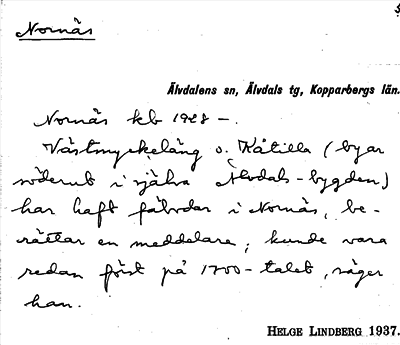 Nornäs
Älvdalens sn, Älvdals tg, Kopparbergs län.
Nornäs kb 1928 –.
Västmyckeläng o. Kåtilla (byar
söderut i själva Älvdals-bygden)
har haft fäbodar i Nornäs, be-
rättar en meddelare; kunde vara
redan först på 1700-talet, säger
han.
HELGE LINDBERG 1937.